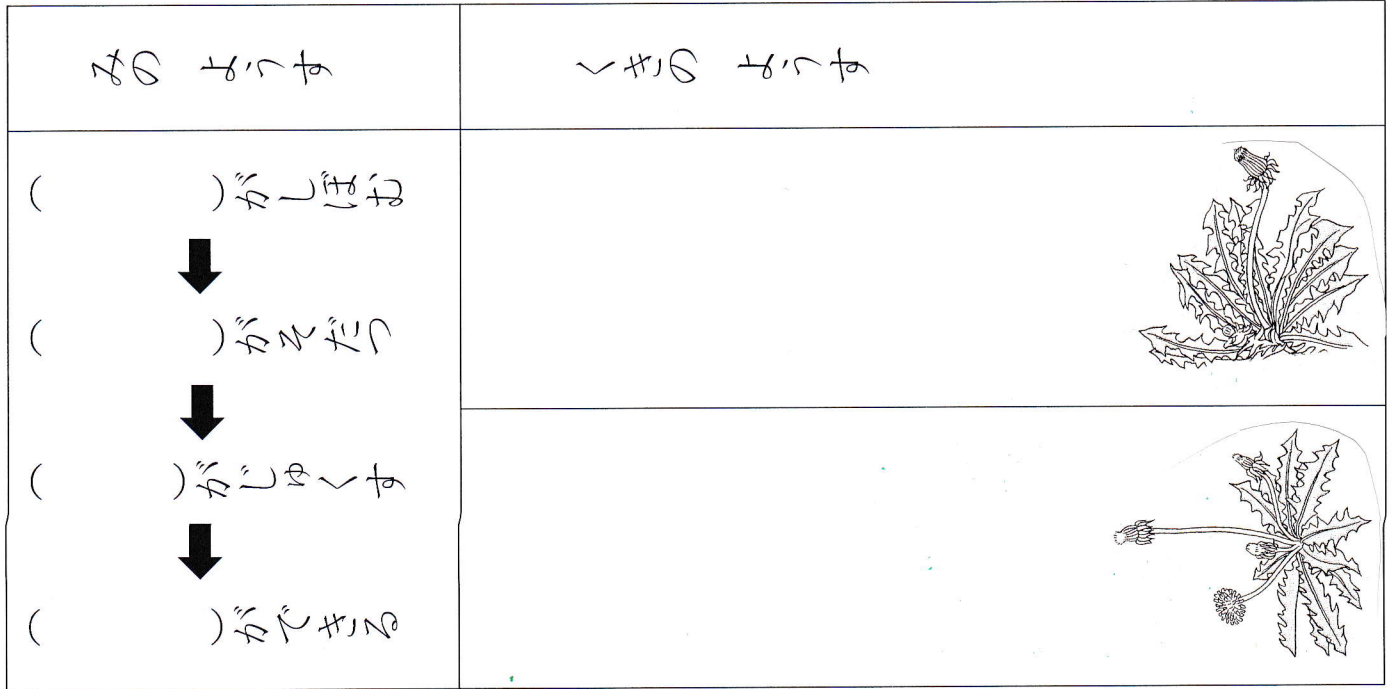 みの ようす
くきの ようす
(　　　)がしぼむ
(　　　)がそだつ
(　　　)がじゅくす
(　　　)ができる